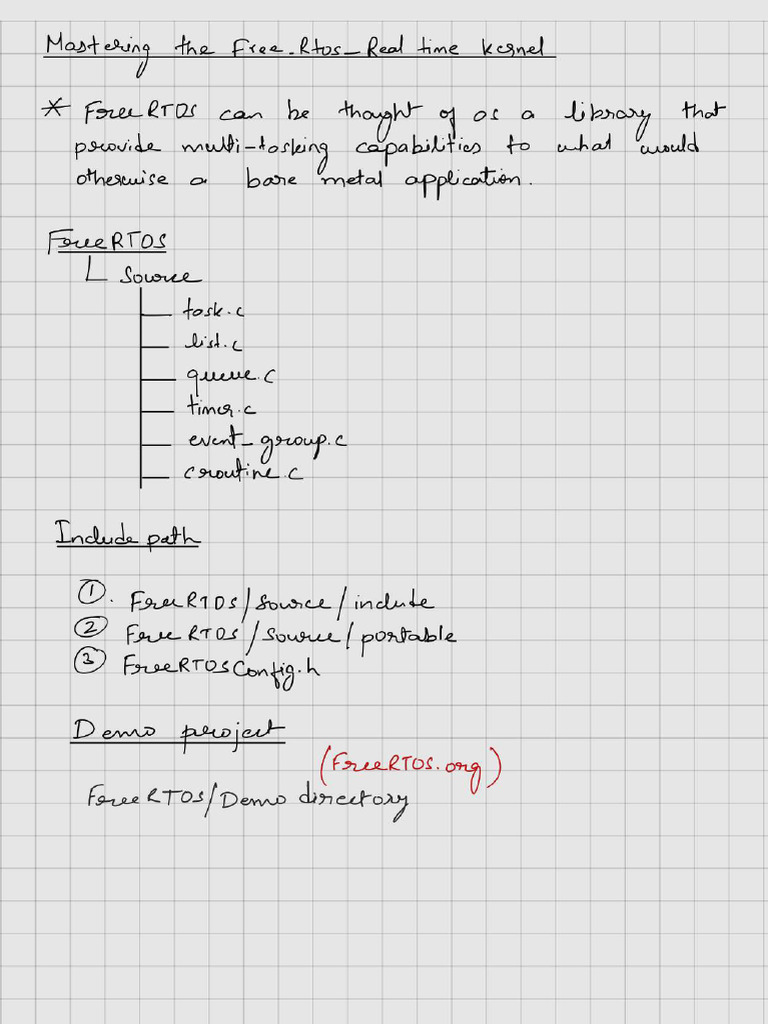 Mastering the Free-Rtos-Real time kernel
* FreeRTOS can be thought of as a library that
provide multi-tasking capabilities to what would
otherwise a bare metal application.
FreeRTOS
Source
task.c
list.c
queue.c
timer.c
event-group.c
croutine.c
Include path
①. FreeRTOS/source/include
② FreeRTOS/source/portable
③ FreeRTOSConfig.h
Demo project
(FreeRTOS.org)
FreeRTOS/Demo directory